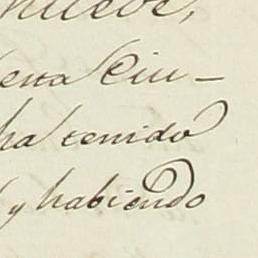 nueve,
esta Ciu-
ha tenido
y habiendo